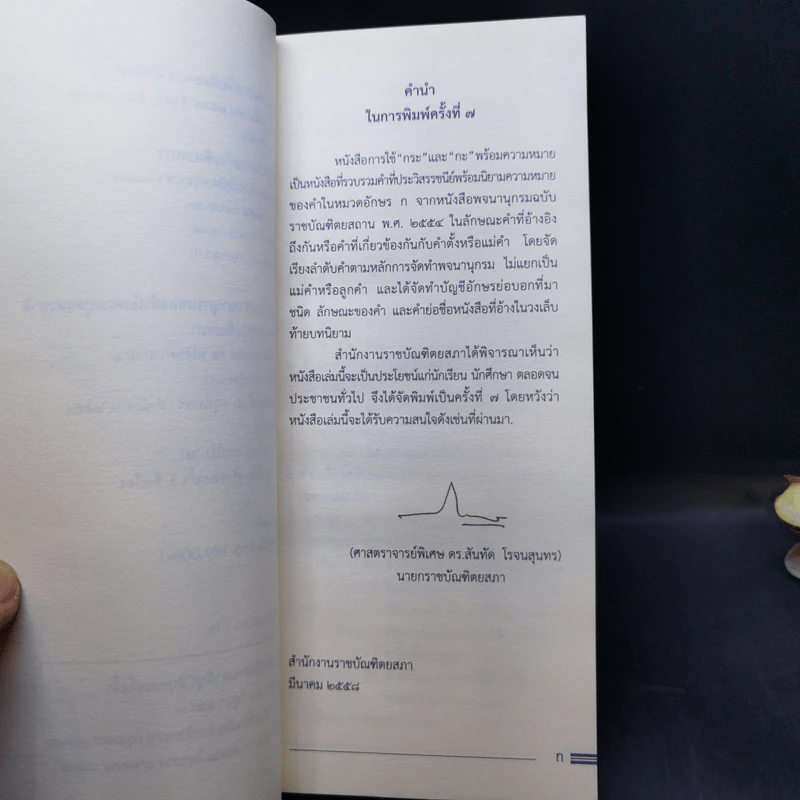 คำนำ
ในการพิมพ์ครั้งที่ ๗
หนังสือการใช้ “กระ” และ “กะ” พร้อมความหมาย
เป็นหนังสือที่รวบรวมคำที่ประวิสรรชนีย์พร้อมนิยามความหมาย
ของคำในหมวดอักษร ก จากหนังสือพจนานุกรมฉบับ
ราชบัณฑิตยสถาน พ.ศ. ๒๕๕๔ ในลักษณะคำที่อ้างอิง
ถึงกันหรือคำที่เกี่ยวข้องกันกับคำตั้งหรือแม่คำ โดยจัด
เรียงลำดับคำตามหลักการจัดทำพจนานุกรม ไม่แยกเป็น
แม่คำหรือลูกคำ และได้จัดทำบัญชีอักษรย่อบอกที่มา
ชนิด ลักษณะของคำ และคำย่อชื่อหนังสือที่อ้างในวงเล็บ
ท้ายบทนิยาม
สำนักงานราชบัณฑิตยสภาได้พิจารณาเห็นว่า
หนังสือเล่มนี้จะเป็นประโยชน์แก่นักเรียน นักศึกษา ตลอดจน
ประชาชนทั่วไป จึงได้จัดพิมพ์เป็นครั้งที่ ๗ โดยหวังว่า
หนังสือเล่มนี้จะได้รับความสนใจดังเช่นที่ผ่านมา.
(ศาสตราจารย์พิเศษ ดร.สันทัด โรจนสุนทร)
นายกราชบัณฑิตยสภา
สำนักงานราชบัณฑิตยสภา
มีนาคม ๒๕๕๘
ก